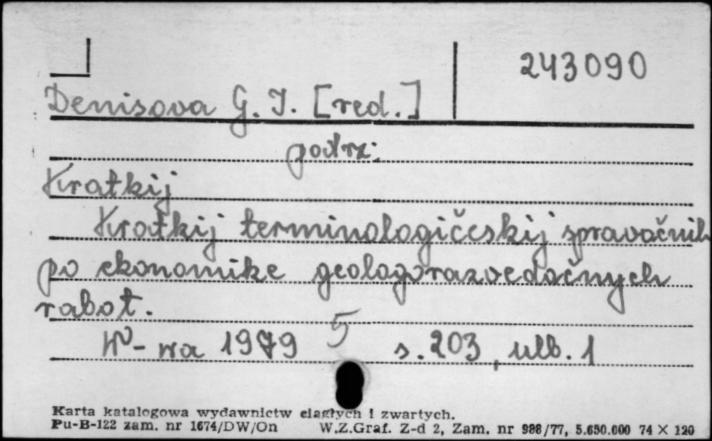 243090
Denisova G. I. [red.]
podrz:
Kratkij
Kratkij terminologičeskij spravočnik
po ekonomike geologorazvedočnych
rabot.
W-wa 1979 5 s. 203, ulb. 1
Karta katalogowa wydawnictw ciągłych i zwartych.
Pu-B-122 zam. nr 1674/DW/On W.Z.Graf. Z-d 2, Zam. nr 988/77, 5.650.000 74 X 120